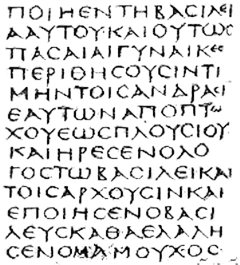 ΠΟΙΗΕΝΤΗΒΑCΙΛΕΙ
ΑΑΥΤΟΥΚΑΙΟΥΤΩC
ΠΑCΑΙΑΙΓΥΝΑΙΚΕC
ΠΕΡΙΘΗCΟΥCΙΝΤΙ
ΜΗΝΤΟΙCΑΝΔΡΑCΙ
ΕΑΥΤΩΝΑΠΟΠΤΩ
ΧΟΥΕΩCΠΛΟΥCΙΟΥ
ΚΑΙΗΡΕCΕΝΟΛΟ
ΓΟCΤΩΒΑCΙΛΕΙΚΑΙ
ΤΟΙCΑΡΧΟΥCΙΝΚΑΙ
ΕΠΟΙΗCΕΝΟΒΑCΙ
ΛΕΥCΚΑΘΑΕΛΑΛΗ
CΕΝΟΜΑΜΟΥΧΟC